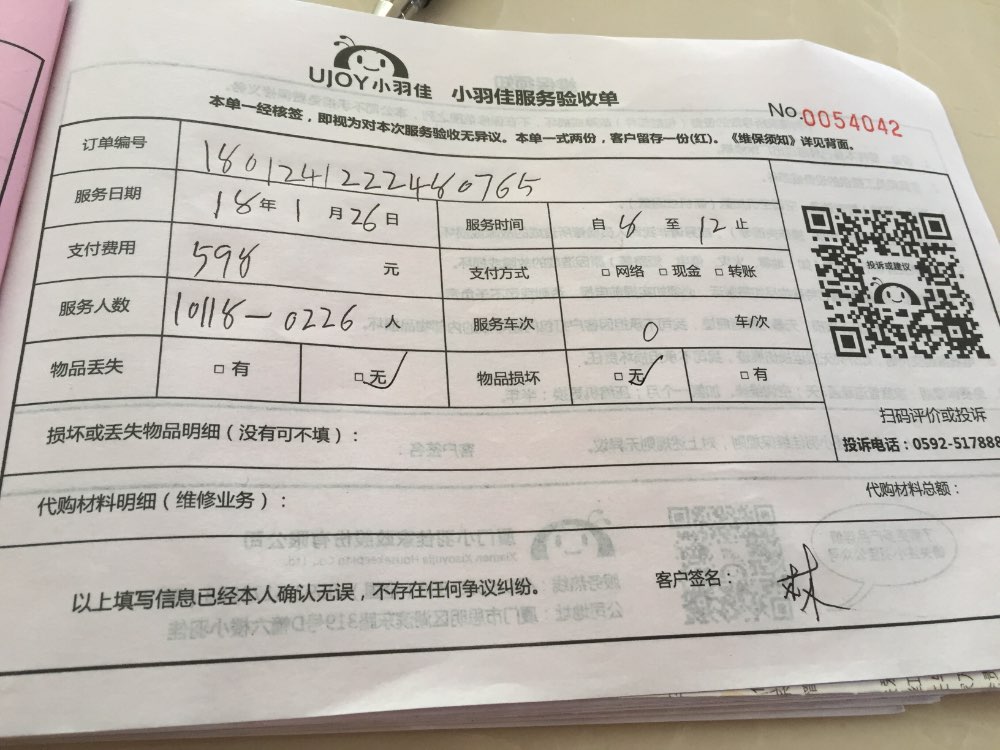 UJOY小羽佳 小羽佳服务验收单
No.0054042
本单一经核签，即视为对本次服务验收无异议。本单一式两份，客户留存一份(红)。《维保须知》详见背面。
订单编号 1801241222480765
服务日期 18年1月26日 服务时间 自8至12止
支付费用 598元 支付方式 □网络 □现金 □转账
服务人数 10118-0226人 服务车次 0 车/次
物品丢失 □有 □无✓ 物品损坏 □无✓ □有
投诉或建议
扫码评价或投诉
投诉电话：0592-517888
损坏或丢失物品明细（没有可不填）：
代购材料明细（维修业务）： 代购材料总额：
以上填写信息已经本人确认无误，不存在任何争议纠纷。 客户签名：